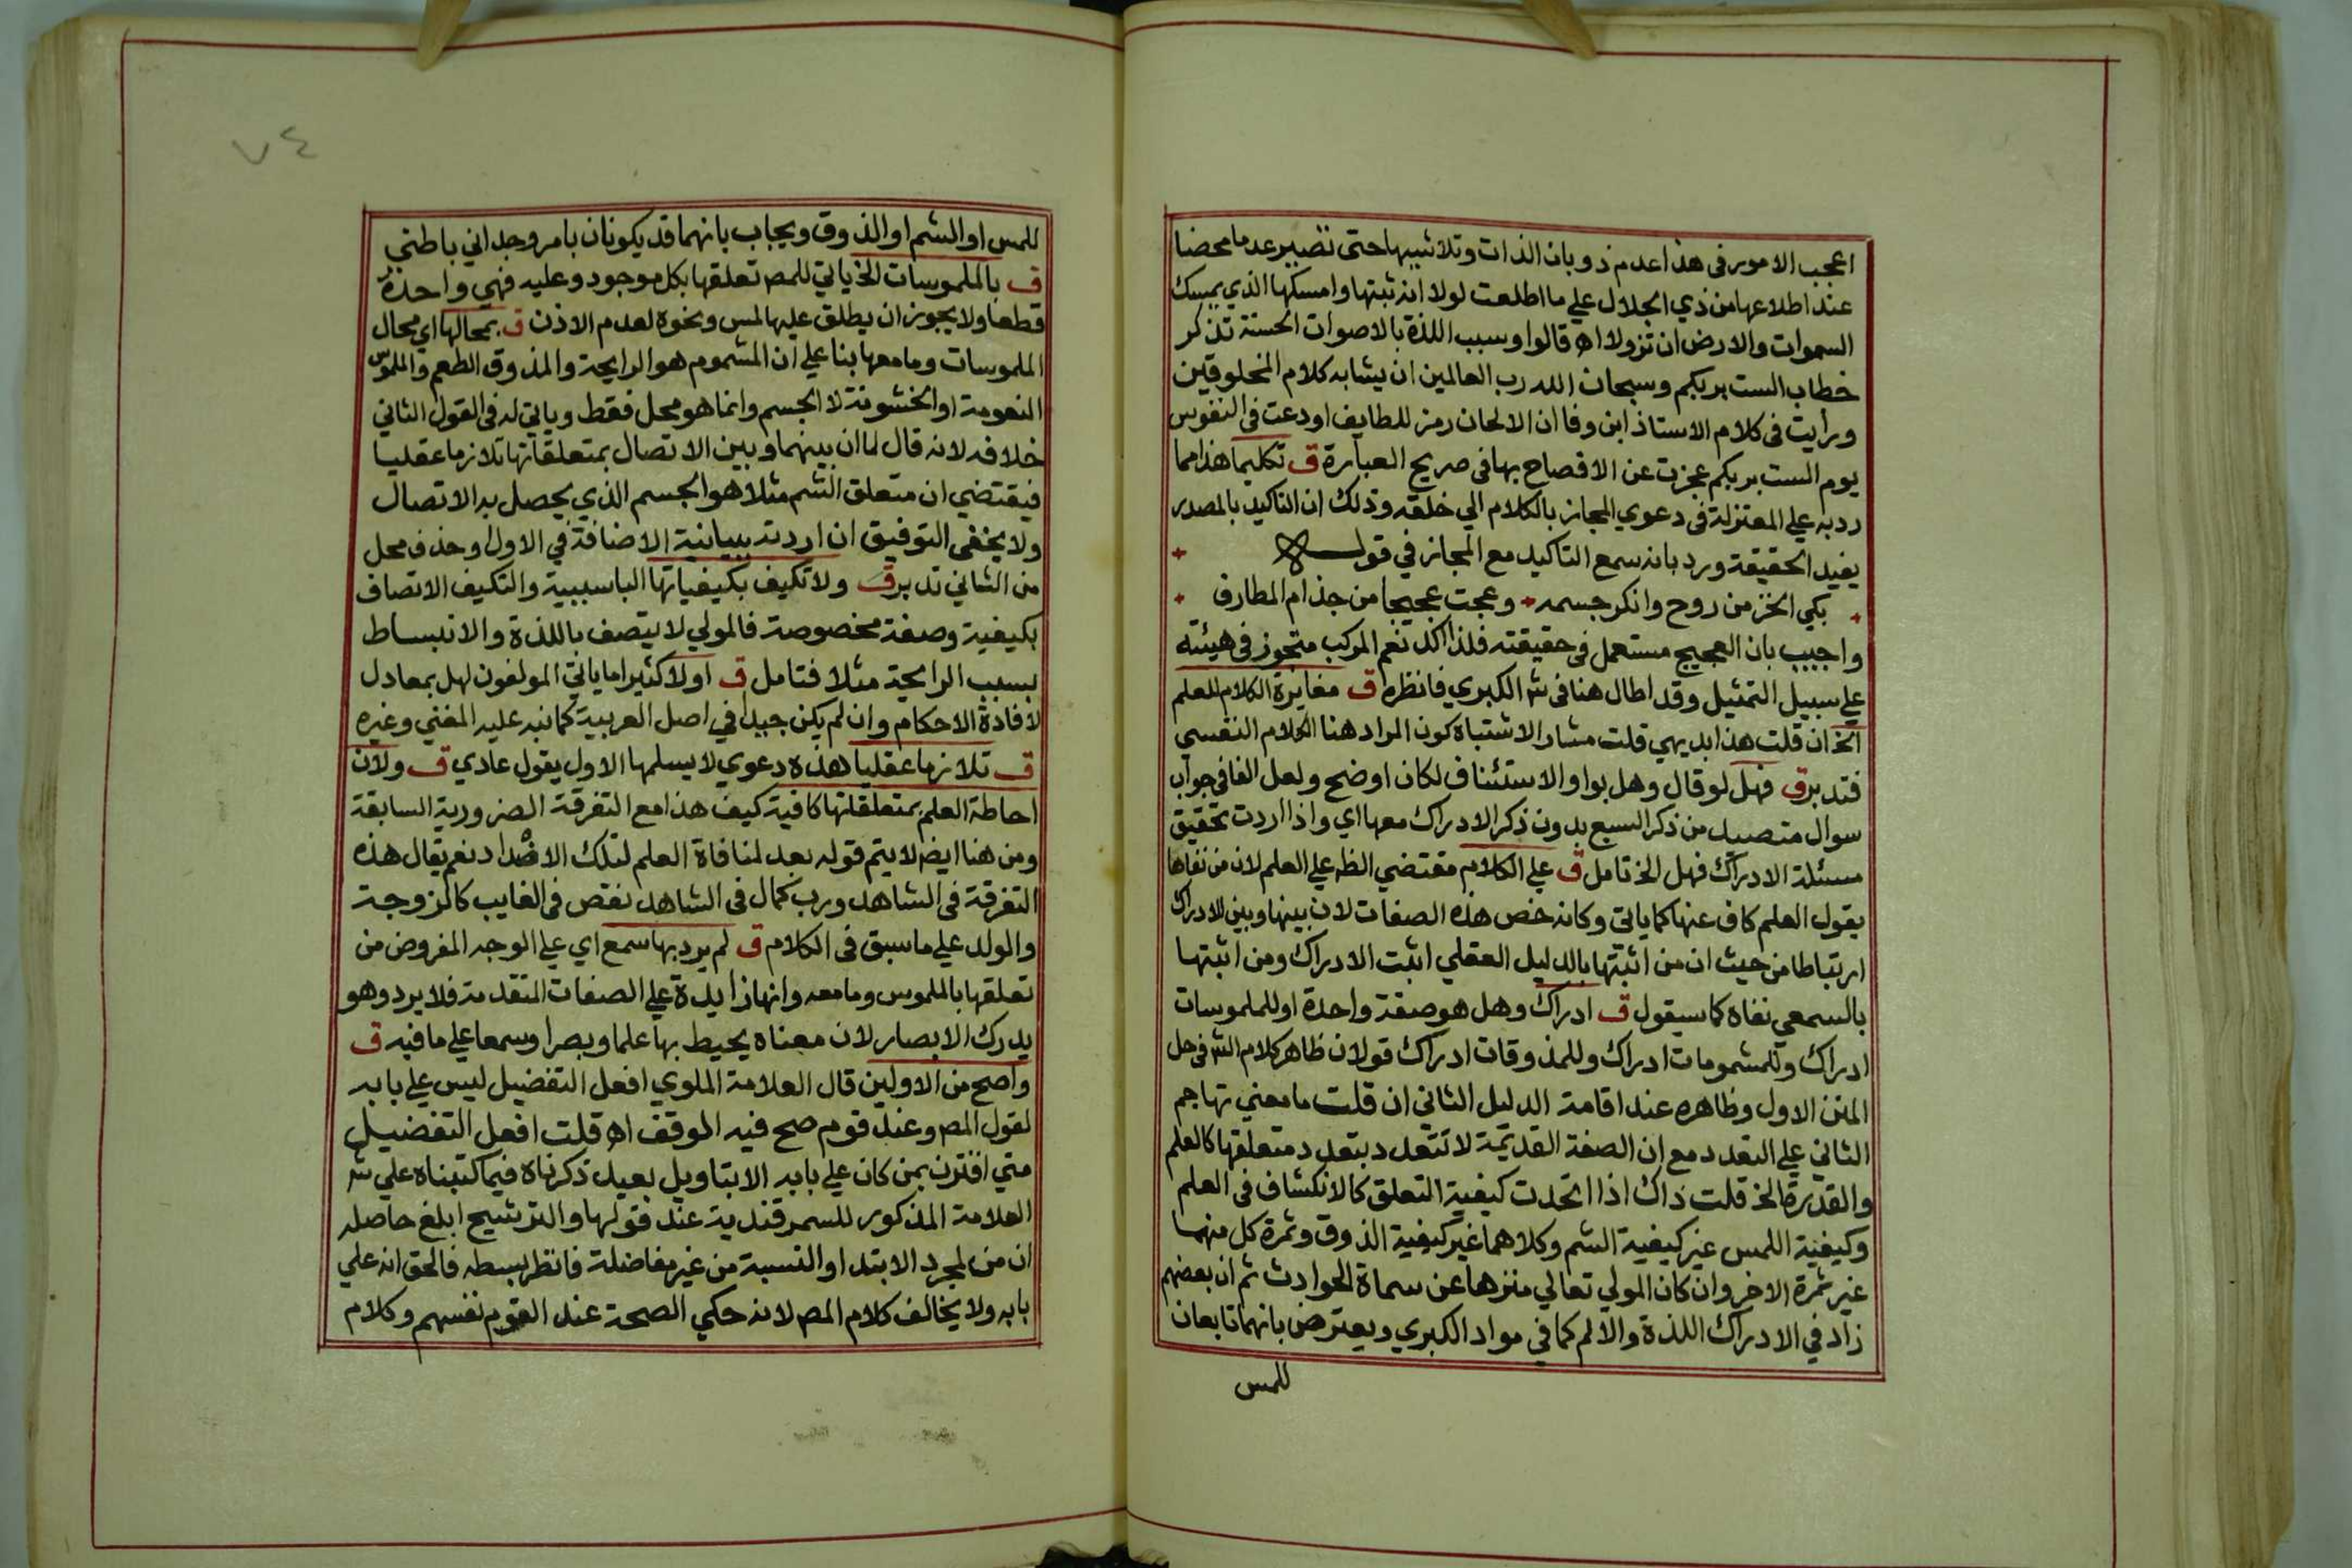 اعجب الامور في هذا عدم ذوبان الذات وتلاشيها حتى تصير عدما محضا
عند اطلاعها من ذي الجلال علي ما اطلعت لولا انه ثبتها وامسكها الذي يمسك
السموات والارض ان تزولا اه قالوا وسبب اللذة بالاصوات الحسنة تذكر
خطاب الست بربكم وسبحان الله رب العالمين ان يشابه كلام المخلوقين
ورأيت في كلام الاستاذ ابن وفا ان الالحان رمز للطايف اودعت في النفوس
يوم الست بربكم عجزت عن الافصاح بها في صريح العبارة ق تكليما هذا مما
رد به علي المعتزلة في دعوي المجاز بالكلام الي خلقه وذلك ان التاكيد بالمصدر
يفيد الحقيقة ورد بانه سمع التاكيد مع المجاز في قوله
بكي الخز من روح وانكر جسمه وعجت عجيجا من جذام المطارف
واجيب بان العجيج مستعمل في حقيقته فلذا اكد نعم المركب متجوز في هيئته
علي سبيل التمثيل وقد اطال هنا في ش الكبري فانظره ق مغايرة الكلام للعلم
الخ ان قلت هذا بديهي قلت مشار الاشتباه كون المراد هنا الكلام النفسي
فتدبر ق فهل لو قال وهل بواو الاستئناف لكان اوضح ولعل الفا في جواب
سوال متصيد من ذكر السبع بدون ذكر الادراك معها اي واذا اردت تحقيق
مسئلة الادراك فهل الخ تامل ق علي الكلام مقتضي الظه علي العلم لان من نفاها
يقول العلم كاف عنها كما ياتي وكانه خص هذه الصفات لان بينها وبين الادراك
ارتباطا من حيث ان من اثبتها بالدليل العقلي اثبت الادراك ومن اثبتها
بالسمعي نفاه كما سيقول ق ادراك وهل هو صفة واحدة او للملموسات
ادراك وللمشمومات ادراك وللمذوقات ادراك قولان ظاهر كلام الش في حل
المتن الاول وظاهره عند اقامة الدليل الثاني ان قلت ما معني تهاجم
الثاني علي التعدد مع ان الصفة القديمة لا تتعدد بتعدد متعلقها كالعلم
والقدرة الخ قلت ذاك اذا اتحدت كيفية التعلق كالانكشاف في العلم
وكيفية اللمس غير كيفية الشم وكلاهما غير كيفية الذوق وثمرة كل منهما
غير ثمرة الاخر وان كان المولي تعالي منزها عن سماة الحوادث ثم ان بعضهم
زاد في الادراك اللذة والالم كما في مواد الكبري ويعترض بانهما تابعان
للمس
٧٤
للمس او الشم او الذوق ويجاب بانهما قد يكونان بامر وجداني باطني
ق بالملموسات الخ ياتي للمص تعلقها بكل موجود وعليه فهي واحدة
قطعا ولا يجوز ان يطلق عليها لمس ونحوه لعدم الاذن ق بمحالها اي محال
الملموسات وما معها بنا علي ان المشموم هو الرايحة والمذوق الطعم والملموس
النعومة او الخشونة لا الجسم وانما هو محل فقط وياتي له في القول الثاني
خلافه لانه قال لما ان بينهما وبين الاتصال بمتعلقاتها تلازما عقليا
فيقتضي ان متعلق الشم مثلا هو الجسم الذي يحصل به الاتصال
ولا يخفي التوفيق ان اردته ببيانية الاضافة في الاول او حذف محل
من الثاني تدبر ق ولا تكيف بكيفياتها الباسببية والتكيف الاتصاف
بكيفية وصفة مخصوصة فالمولي لا يتصف باللذة والانبساط
بسبب الرايحة مثلا فتامل ق اولا كثيرا ما ياتي المولفون لهل بمعادل
لافادة الاحكام وان لم يكن جيدا في اصل العربية كما نبه عليه المغني وغيره
ق تلازما عقليا هذه دعوي لا يسلمها الاول يقول عادي ق ولان
احاطة العلم بمتعلقاتها كافية كيف هذا مع التفرقة الضرورية السابقة
ومن هنا ايضا لا يتم قوله بعد لمنافاة العلم لتلك الاضداد نعم يقال هذه
التفرقة في الشاهد ورب كمال في الشاهد نقص في الغايب كالزوجة
والولد علي ما سبق في الكلام ق لم يرد بها سمع اي علي الوجه المفروض من
تعلقها بالملموس وما معه وانها زايدة علي الصفات المتقدمة فلا يرد وهو
يدرك الابصار لان معناه يحيط بها علما وبصرا وسمعا علي ما فيه ق
واصح من الاولين قال العلامة الملوي افعل التفضيل ليس علي بابه
لقول المص وعند قوم صح فيه الموقف اه قلت افعل التفضيل
متي اقترن بمن كان علي بابه الا بتاويل بعيد ذكرناه فيما كتبناه علي ش
العلامة المذكور للسمرقندية عند قولها والترشيح ابلغ حاصله
ان من لمجرد الابتدا او النسبة من غير مفاضلة فانظر بسطه فالحق انه علي
بابه ولا يخالف كلام المص لانه حكي الصحة عند القوم نفسهم وكلام